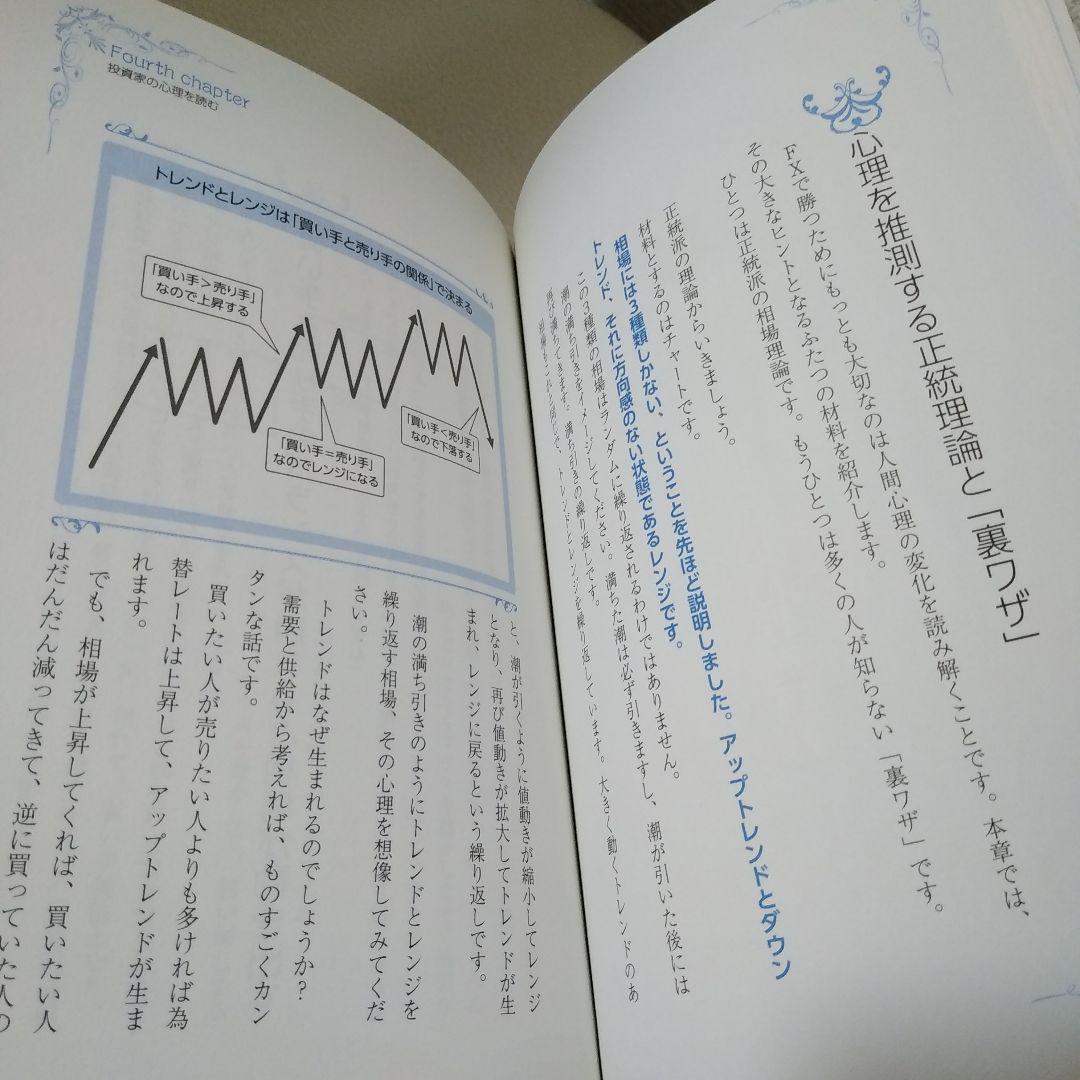 心理を推測する正統理論と「裏ワザ」
FXで勝つためにもっとも大切なのは人間心理の変化を読み解くことです。本章では、
その大きなヒントとなるふたつの材料を紹介します。
ひとつは正統派の相場理論です。もうひとつは多くの人が知らない「裏ワザ」です。
正統派の理論からいきましょう。
材料とするのはチャートです。
相場には3種類しかない、ということを先ほど説明しました。アップトレンドとダウン
トレンド、それに方向感のない状態であるレンジです。
この3種類の相場はランダムに繰り返されるわけではありません。
潮の満ち引きをイメージしてください。満ちた潮は必ず引きますし、潮が引いた後には
再び満ちてきます。満ち引きの繰り返しです。
相場もこれと同じで、トレンドとレンジを繰り返しています。大きく動くトレンドのあ
Fourth chapter
投資家の心理を読む
トレンドとレンジは「買い手と売り手の関係」で決まる
「買い手>売り手」
なので上昇する
「買い手=売り手」
なのでレンジになる
「買い手<売り手」
なので下落する
と、潮が引くように値動きが縮小してレンジ
となり、再び値動きが拡大してトレンドが生
まれ、レンジに戻るという繰り返しです。
潮の満ち引きのようにトレンドとレンジを
繰り返す相場、その心理を想像してみてくだ
さい。
トレンドはなぜ生まれるのでしょうか?
需要と供給から考えれば、ものすごくカン
タンな話です。
買いたい人が売りたい人よりも多ければ為
替レートは上昇して、アップトレンドが生ま
れます。
でも、相場が上昇してくれば、買いたい人
はだんだん減ってきて、逆に買っていた人の